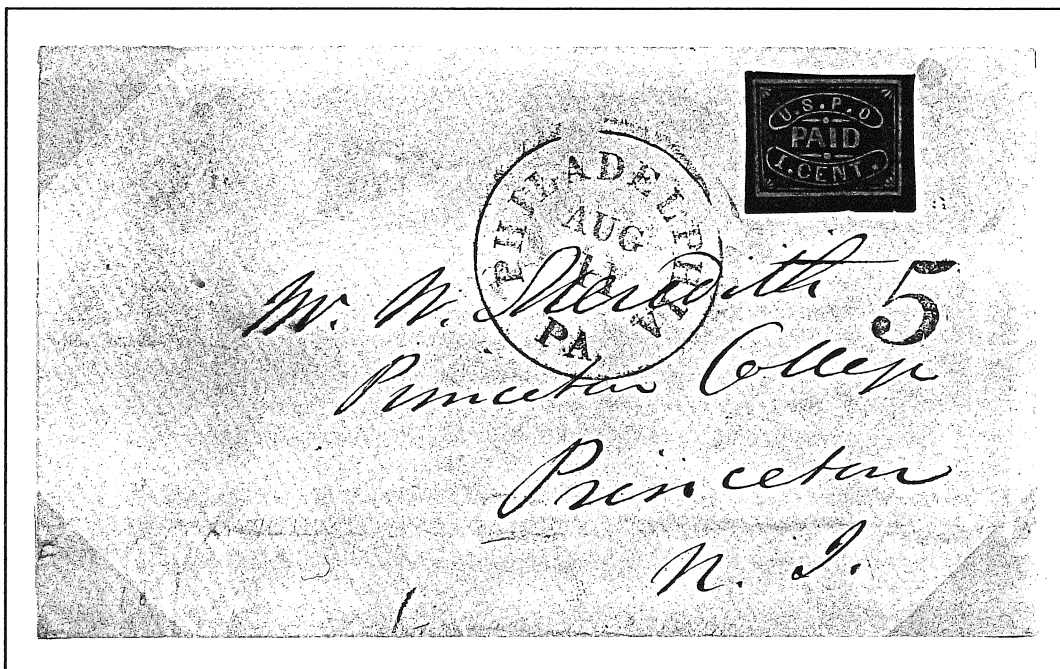 U.S.P.O
PAID
1.CENT.
PHILADELPHIA
AUG
11
PA.
5
Mr. W.
Princeton College
Princeton
N. J.